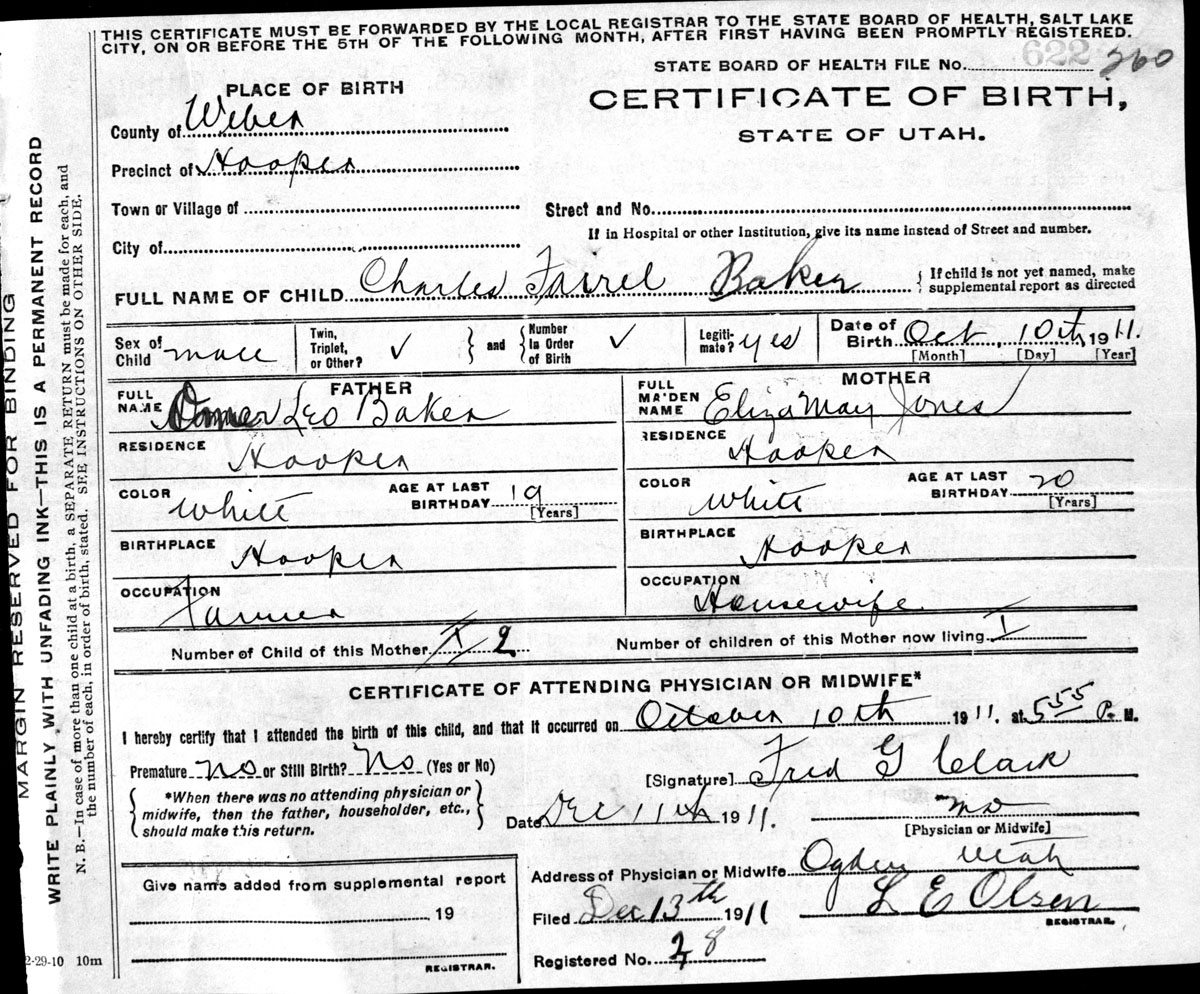 THIS CERTIFICATE MUST BE FORWARDED BY THE LOCAL REGISTRAR TO THE STATE BOARD OF HEALTH, SALT LAKE
CITY, ON OR BEFORE THE 5TH OF THE FOLLOWING MONTH, AFTER FIRST HAVING BEEN PROMPTLY REGISTERED.
622
STATE BOARD OF HEALTH FILE NO. 260
PLACE OF BIRTH
CERTIFICATE OF BIRTH,
STATE OF UTAH.
County of Weber
Precinct of Hooper
Town or Village of
Street and No.
If in Hospital or other Institution, give its name instead of Street and number.
City of
FULL NAME OF CHILD Charles Fairel Baker
{ If child is not yet named, make
supplemental report as directed
Sex of
Child male
Twin,
Triplet,
or Other? ✓
} and {
Number
in Order
of Birth ✓
Legiti-
mate? yes
Date of
Birth Oct, 10th 1911.
[Month] [Day] [Year]
FATHER
FULL
NAME Omer Leo Baker
RESIDENCE Hooper
COLOR White
AGE AT LAST
BIRTHDAY 19
[Years]
BIRTHPLACE Hooper
OCCUPATION Farmer
MOTHER
FULL
MAIDEN
NAME Eliza May Jones
RESIDENCE Hooper
COLOR White
AGE AT LAST
BIRTHDAY 20
[Years]
BIRTHPLACE Hooper
OCCUPATION Housewife
Number of Child of this Mother 2
Number of children of this Mother now living I
CERTIFICATE OF ATTENDING PHYSICIAN OR MIDWIFE*
I hereby certify that I attended the birth of this child, and that it occurred on October 10th 1911. at 5 55 P. M.
Premature No or Still Birth? No (Yes or No)
[Signature] Fred G Clark
{ *When there was no attending physician or
midwife, then the father, householder, etc.,
should make this return. }
Date Dec 11th 1911.
MD
[Physician or Midwife]
Address of Physician or Midwife Ogden Utah
Give name added from supplemental report
19
REGISTRAR.
Filed Dec 13th 1911
L E Olsen
REGISTRAR.
Registered No. 28
2-29-10 10m
MARGIN RESERVED FOR BINDING
WRITE PLAINLY WITH UNFADING INK—THIS IS A PERMANENT RECORD
N. B.—In case of more than one child at a birth, a SEPARATE RETURN must be made for each, and
the number of each, in order of birth, stated. SEE INSTRUCTIONS ON OTHER SIDE.